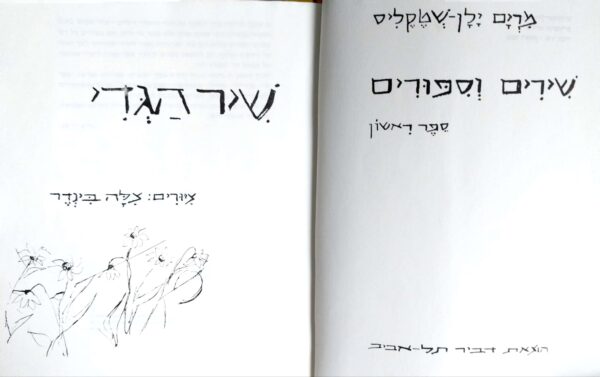 מִרְיָם יָלָן-שְׁטֶקֶלִיס
שִׁירִים וְסִפּוּרִים
סֵפֶר רִאשׁוֹן
הוצאת דביר תל-אביב
שִׁיר הַגְּדִי
צִיּוּרִים: צִלָּה בִּינְדֶר